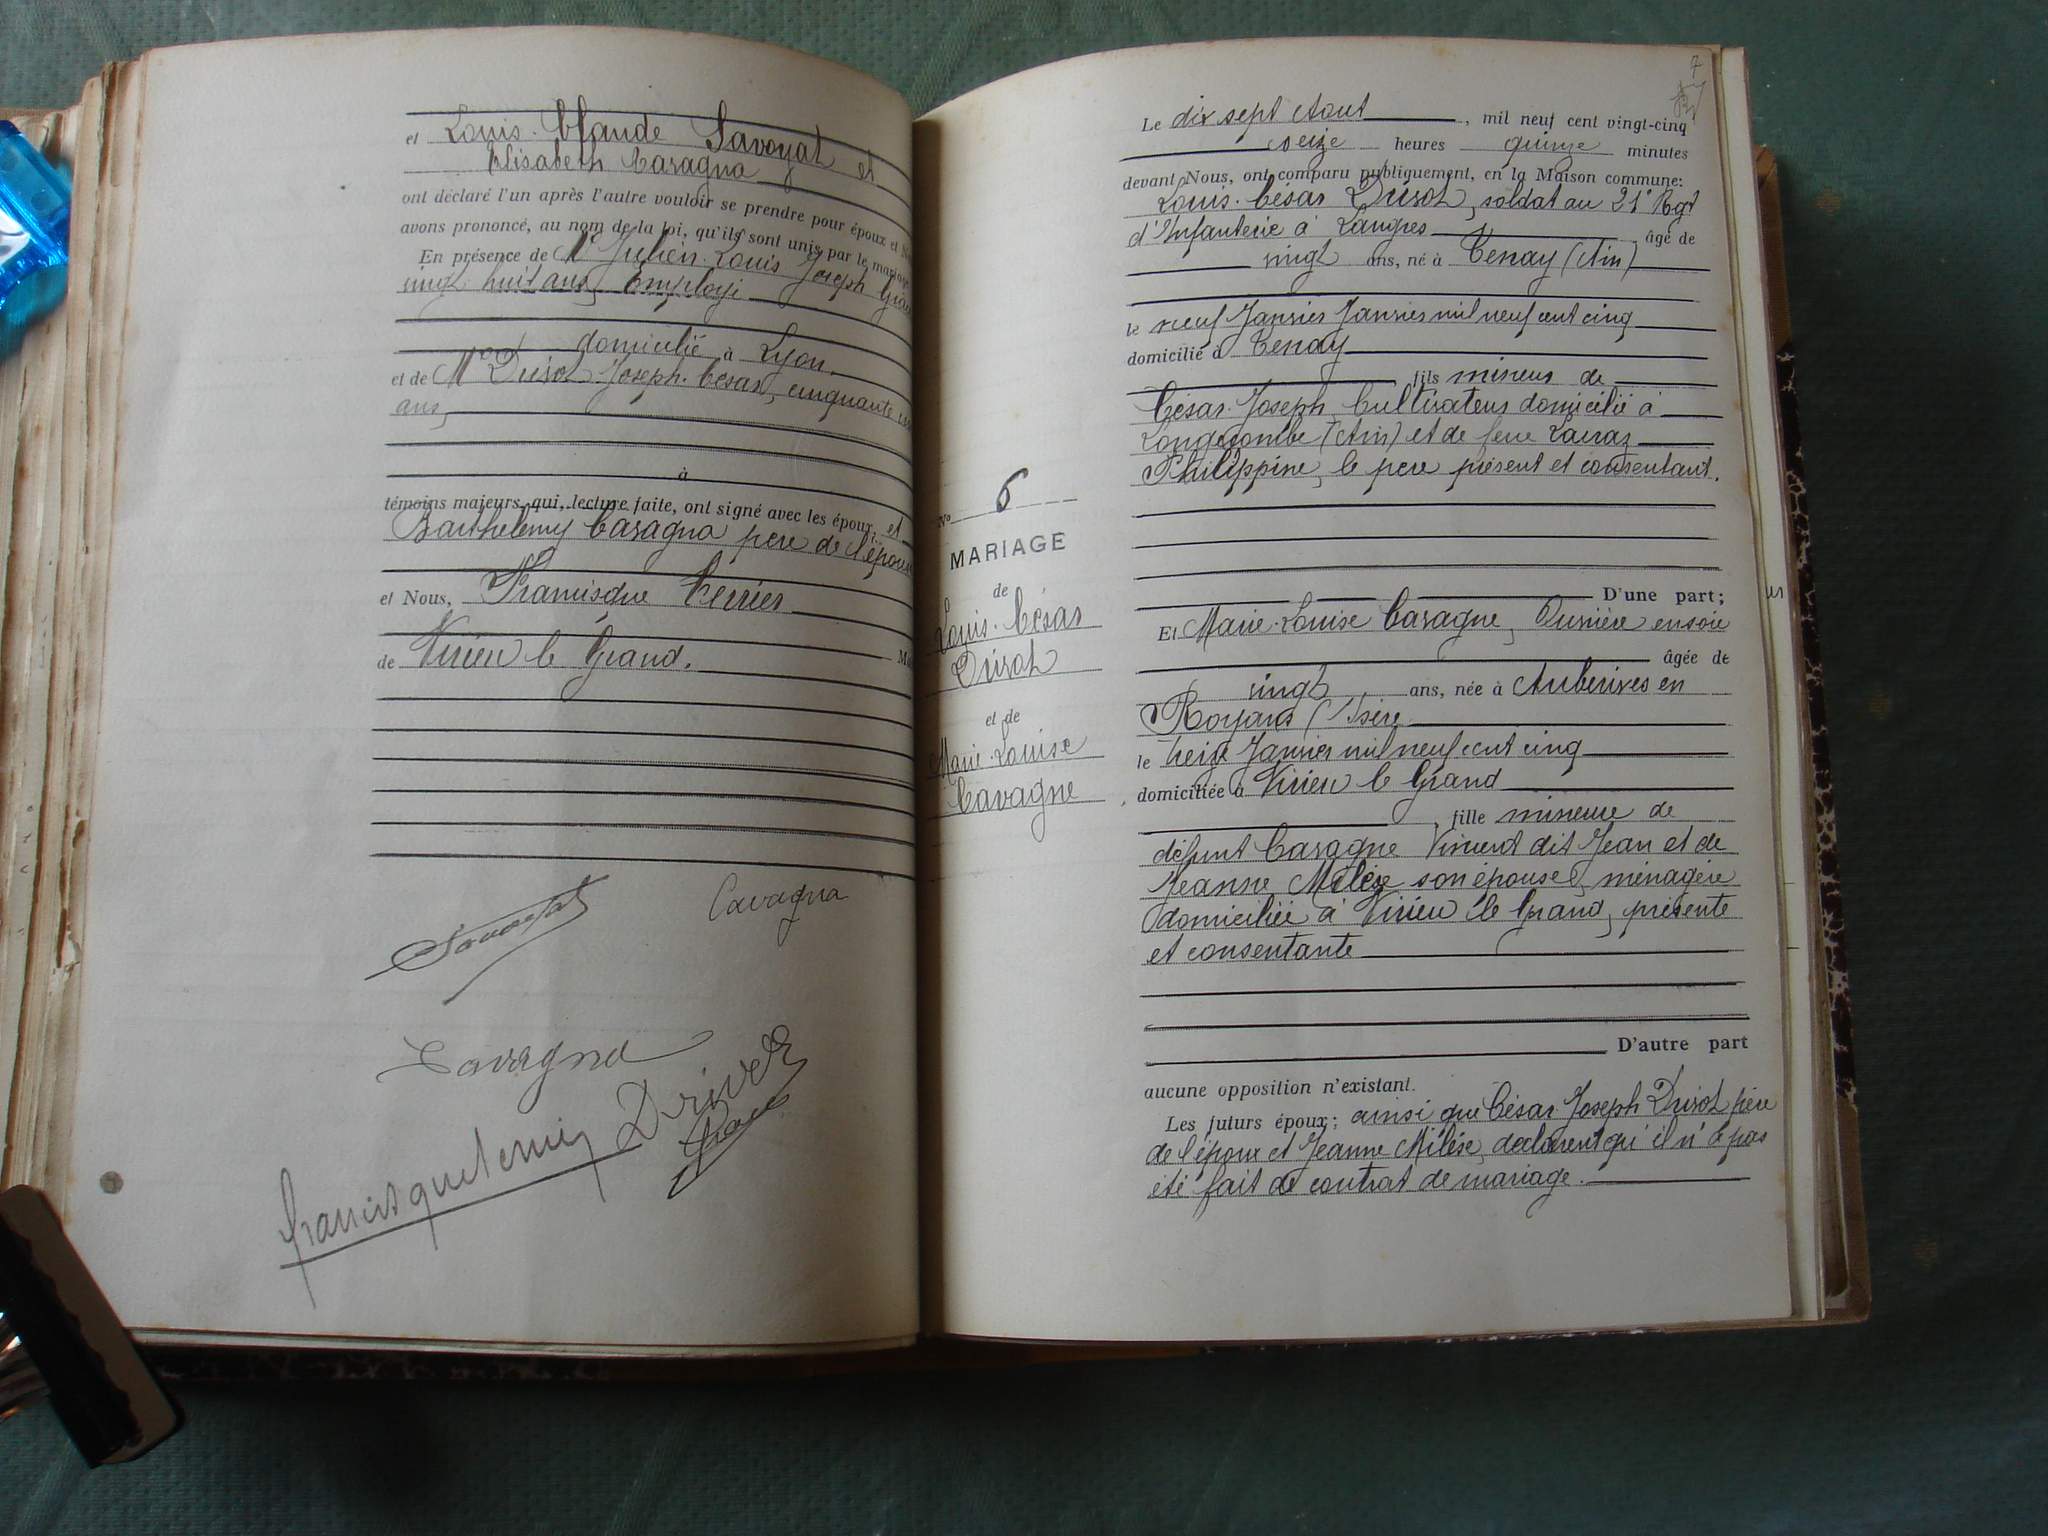 et Louis-Claude Savoyat et
Elisabeth Cavagna
ont déclaré l'un après l'autre vouloir se prendre pour époux et
avons prononcé, au nom de la loi, qu'ils sont unis par le mariage
En présence de Mr Julien-Louis Joseph
vingt huit ans, Employé
domicilié à Lyon.
et de Mr Drisot Joseph-César, cinquante
ans,
à
témoins majeurs qui, lecture faite, ont signé avec les époux, et
Barthélemy Cavagna père de l'épouse
et Nous, Francisque Terrier
de Virieu le Grand.
Savoyat
Cavagna
Cavagna
Francisque terrier
N° 6
MARIAGE
de
Louis-César
Drisot
et de
Marie-Louise
Cavagne
7
Le dix sept Aout, mil neuf cent vingt-cinq
seize heures quinze minutes
devant Nous, ont comparu publiquement, en la Maison commune:
Louis-César Drisot, soldat au 21e Rgt
d'Infanterie à Langres âgé de
vingt ans, né à Tenay (Ain)
le neuf Janvier Janvier mil neuf cent cinq
domicilié à Tenay
fils mineur de
César-Joseph, Cultivateur domicilié à
Longecombe (Ain) et de feue Lairaz
Philippine, le père présent et consentant.
D'une part;
Et Marie-Louise Cavagne, Ouvrière en soie
âgée de
vingt ans, née à Auberives en
Royans (Isère
le treize Janvier mil neuf cent cinq
domiciliée à Virieu le Grand
, fille mineure de
défunt Cavagne Vincent dit Jean et de
Jeanne Milèse son épouse, ménagère
domiciliée à Virieu le Grand, présente
et consentante
D'autre part
aucune opposition n'existant.
Les futurs époux; ainsi que César-Joseph Drisot père
de l'époux et Jeanne Milèse, déclarent qu'il n'a pas
été fait de contrat de mariage.